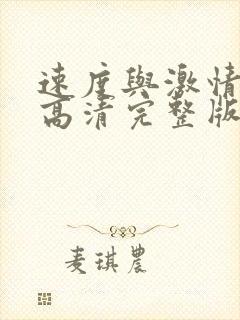 速度與激情
高清完整版
麦琪農